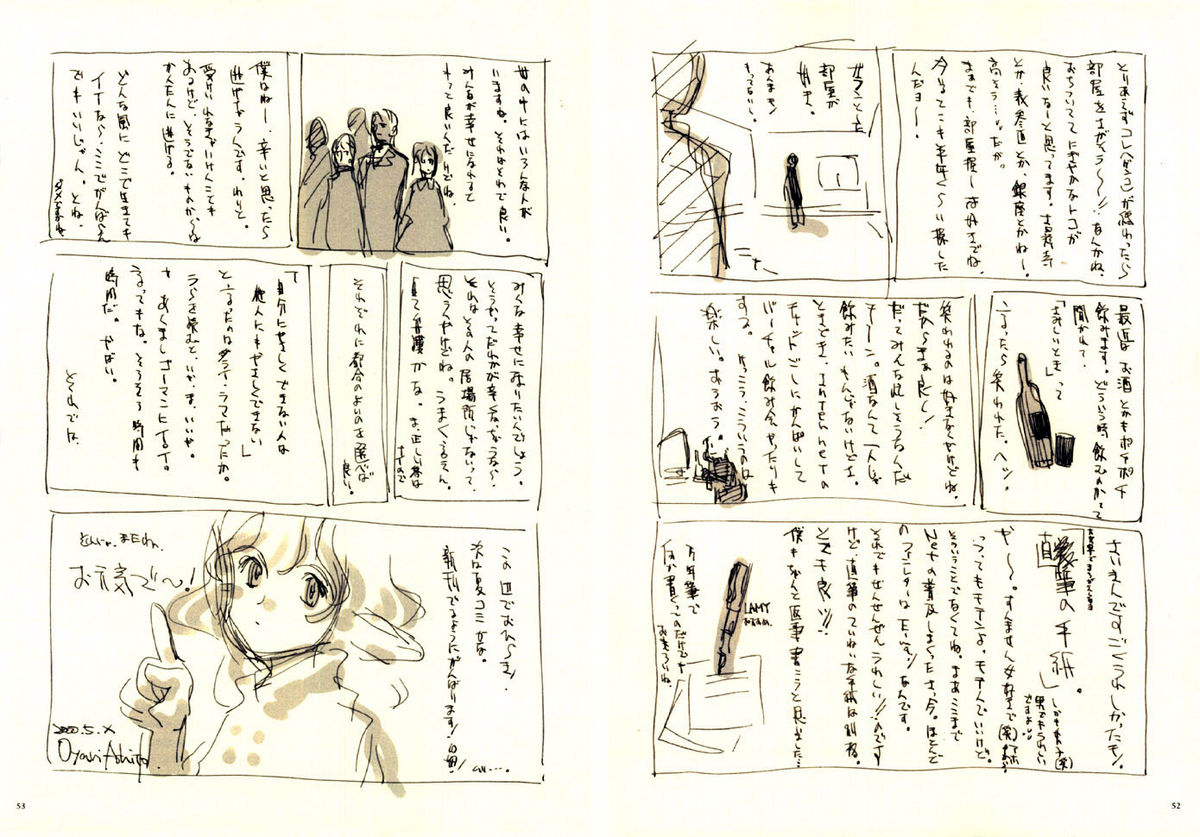 とりあえずコレ(ゲンコー)が終わったら
部屋をさがそう〜〜!!なんかね、
おちついててにぎやかなトコが
良いなーと思ってます。吉祥寺
とか表参道とか、銀座とかねー。
高そう…。だが。
まぁでも、部屋探しは好きでね。
今んトコも半年くらい探した
んだヨー。
ガランとした
部屋が
好き。
あんまモノ
もってないし。
最近は お酒とかもポチポチ
飲みます。どういう時飲むのかって
聞かれて
「さみしいとき」って
言ったら笑われた。ヘッ。
笑われるのは好きなんやけどね。
だからまあ良し!
だってみんなはしそうなんだ
もーン。酒なんて一人じゃ
飲みたいもんじゃないけどさ。
ときどき、
チャットごしにかんぱいして
バーチャル飲み会やったりも
する。けっこう、こういうのは
楽しい。おうおう。
さいきんですごくうれしかったモノ。
「直筆の手紙」。
や〜〜。すんません女好きで(笑)
ってもモテンよ。モテんでいいけど。
そういうことでなくてね。まあここまで
Netの普及しまくったさ、今。ほとんど
のファンレターはEmailなんです。
それでもぜんぜんうれしい!!のです
けど、直筆のていねいな手紙は別格。
とても良し!!!
僕もちゃんと返事書こうと思いました…
万年筆で
LAMY
おすすめ。
52
世の中にはいろんな人が
いますね。それはそれで良い。
みんなが幸せになれると
もっと良いんだけどね。
僕はねー、辛いと思ったら
逃げちゃうんです。わりと。
受け入れなきゃいけんことも
あるけど、そうでないものからは
かんたんに逃げる。
どんな風にどこで生きても
イイなら、ここでがんばらん
でもいいじゃん。とね。
ダメですかね。
みんな幸せになりたいんでしょう。
そうやってだれかが辛くなっちゃうなら、
それはその人の居場所じゃないって、
思うんやけどね。うまくいえん。
それぞれに都合のよいのを選べば
良い。
「自分にやさしくできない人は
他人にもやさしくできない」
と言ったのはダライ・ラマだったか。
うらを読むと、いかんま、いいや。
さ、あんましゴーマンにイイイ。
るってもね。そろそろ時間も
時間だ。やばい。
それでは、
この辺でおひらき。
次は夏コミかな。
新刊でるようにがんばります!
そんじゃ、またね。
お元気で〜!
2000.5.X
Oyari Ashito
53